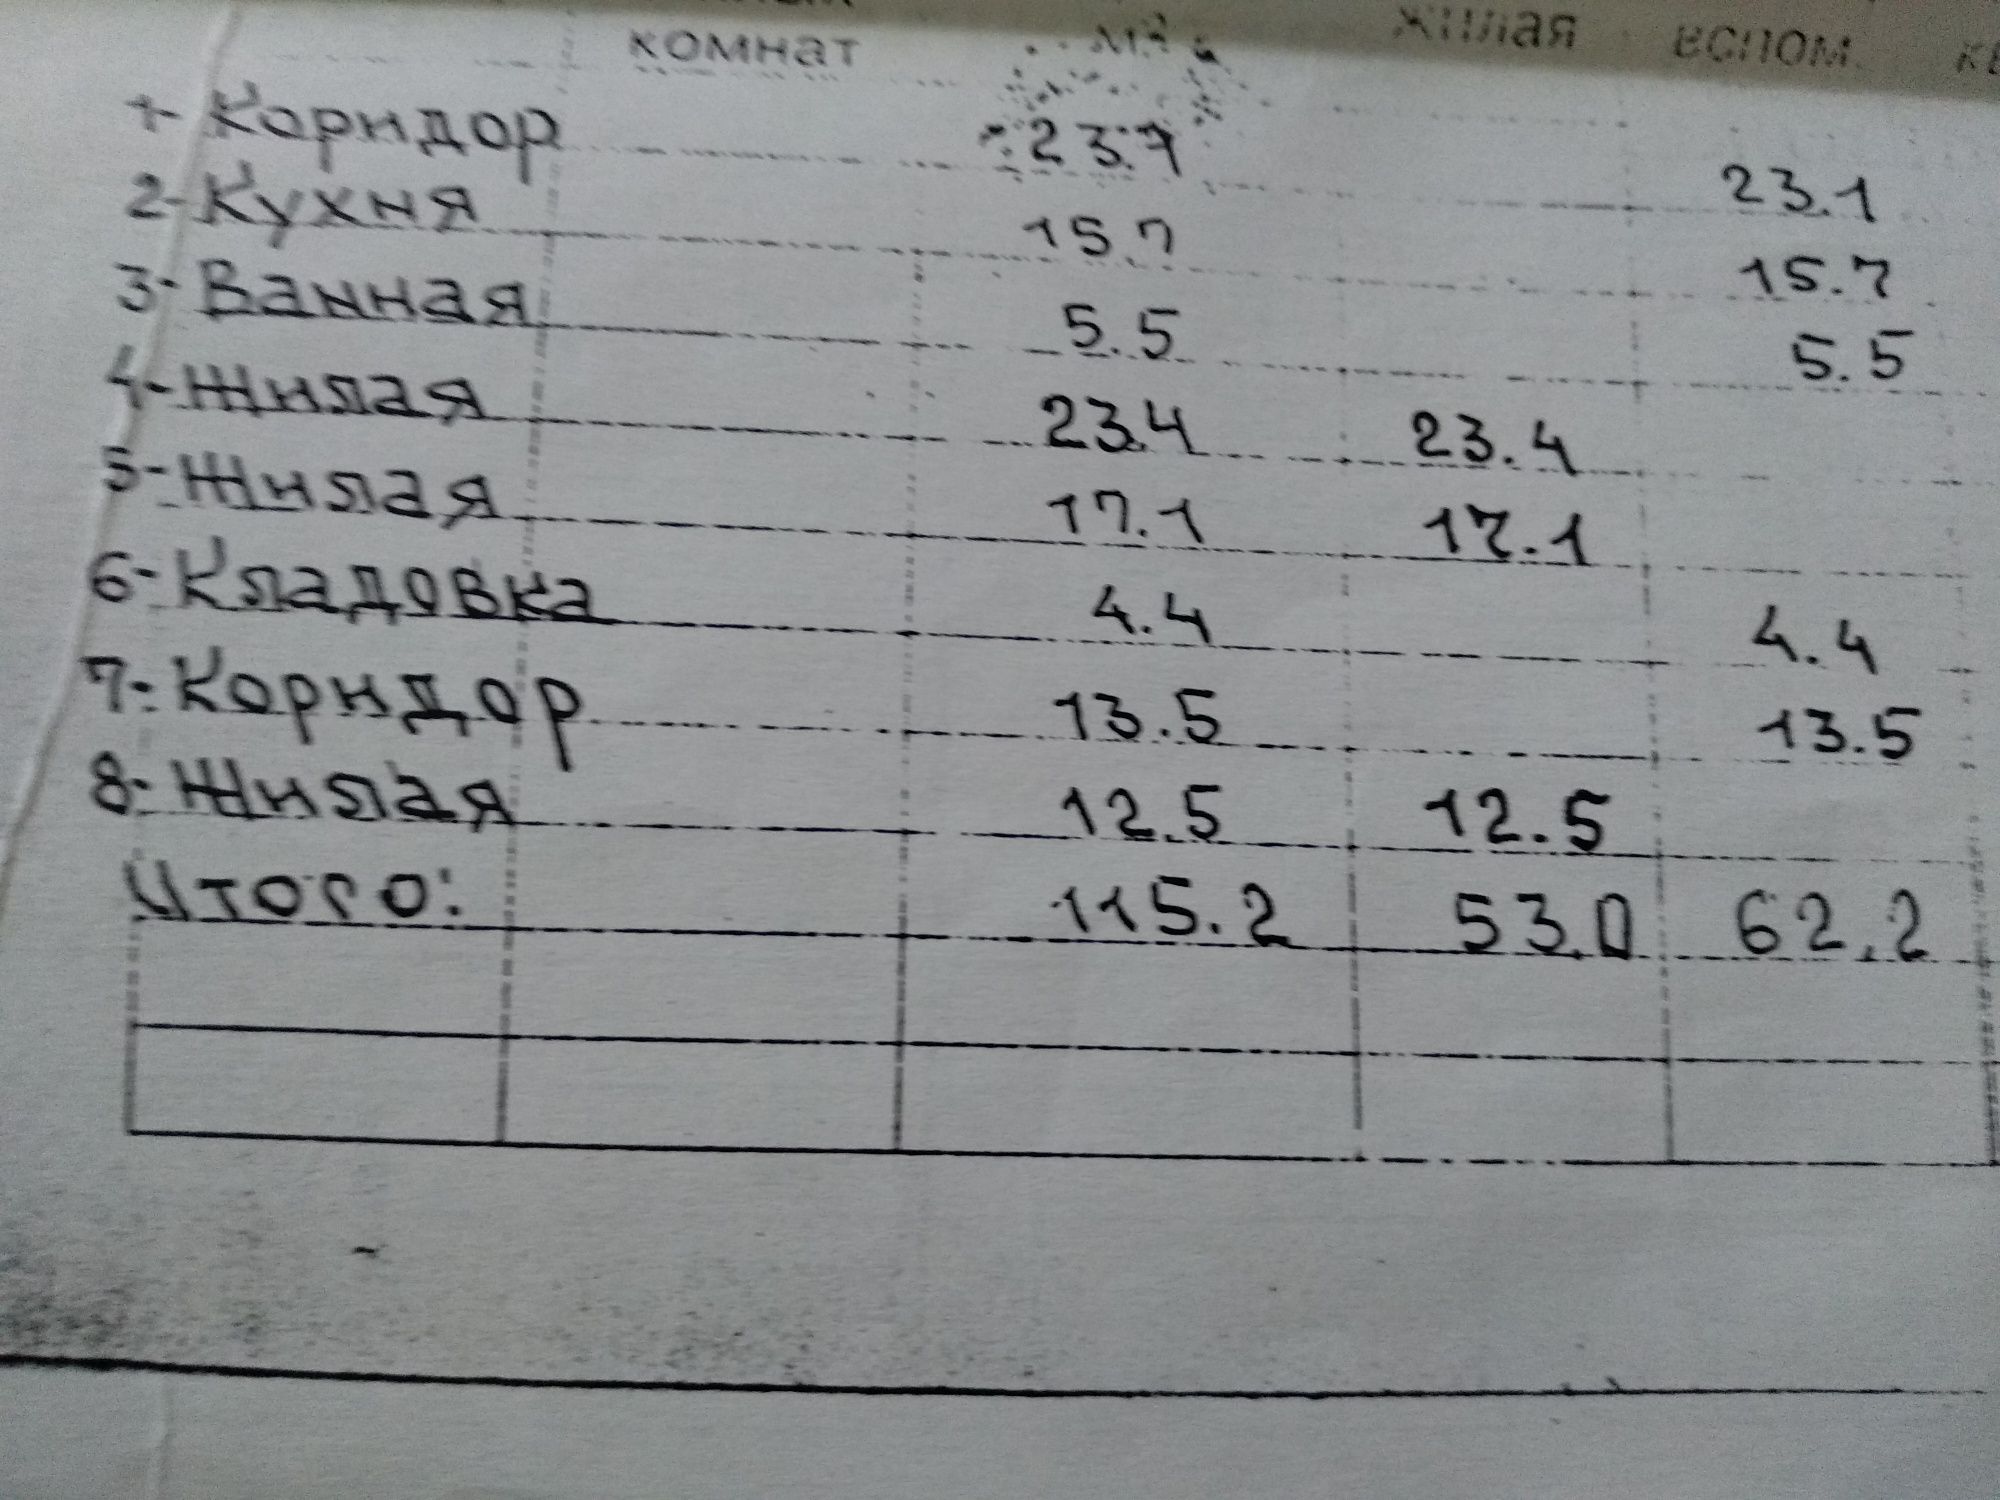 комнат м² жилая вспом.
1- Коридор 23.1 23.1
2- Кухня 15.7 15.7
3- Ванная 5.5 5.5
4- Жилая 23.4 23.4
5- Жилая 17.1 17.1
6- Кладовка 4.4 4.4
7- Коридор 13.5 13.5
8- Жилая 12.5 12.5
Итого: 115.2 53.0 62.2